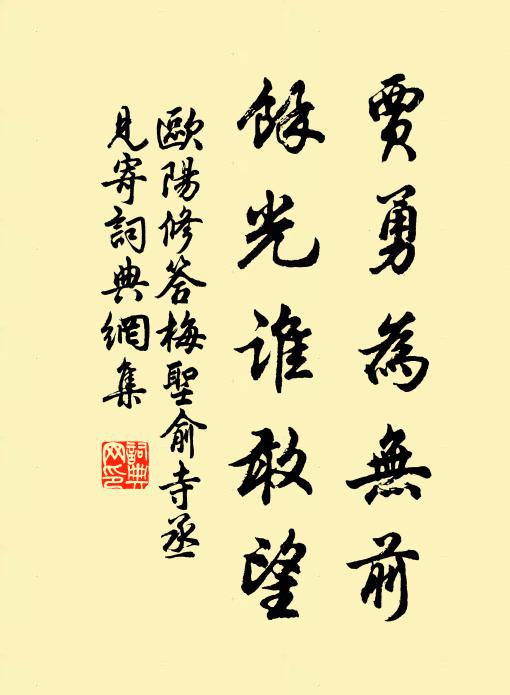 賈勇為無前
餘光誰敢望
歐陽修答梅聖俞寺丞
見寄詞典網集
詞典
网印